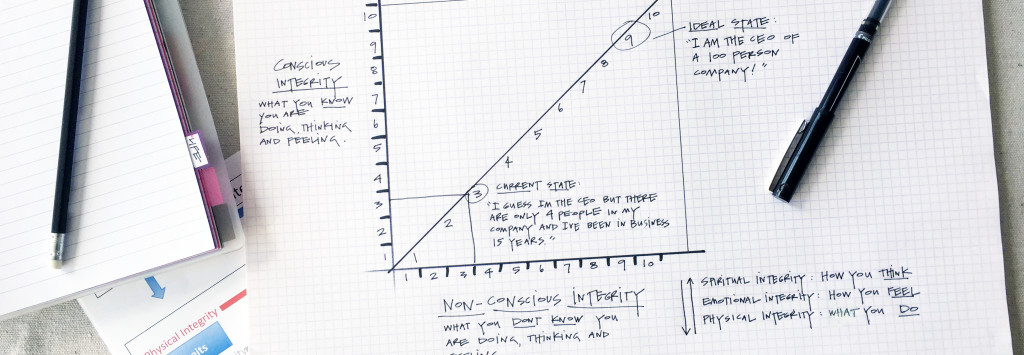 CONSCIOUS
INTEGRITY
WHAT YOU KNOW
YOU ARE
DOING, THINKING
AND FEELING.
10
9
8
7
6
5
4
3
2
1
1
2
3
4
5
6
7
8
9
10
IDEAL STATE:
"I AM THE CEO OF
A 100 PERSON
COMPANY!"
CURRENT STATE:
"I GUESS IM THE CEO BUT THERE
ARE ONLY 4 PEOPLE IN MY
COMPANY AND I'VE BEEN IN BUSINESS
15 YEARS."
1 2 3 4 5 6 7 8 9 10
NON-CONSCIOUS INTEGRITY
WHAT YOU DONT KNOW YOU
ARE DOING, THINKING AND
FEELING
SPIRITUAL INTEGRITY: HOW YOU THINK
EMOTIONAL INTEGRITY: HOW YOU FEEL
PHYSICAL INTEGRITY: WHAT YOU DO
LIFE
Physical Integrity